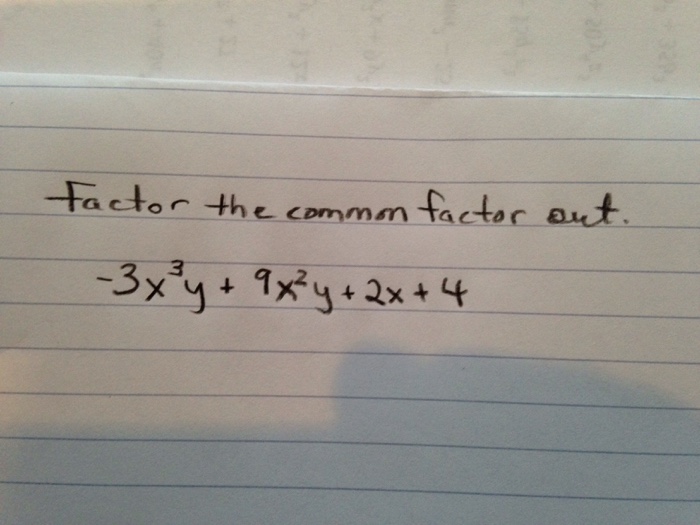 Factor the common factor out.
-3x³y + 9x²y + 2x + 4